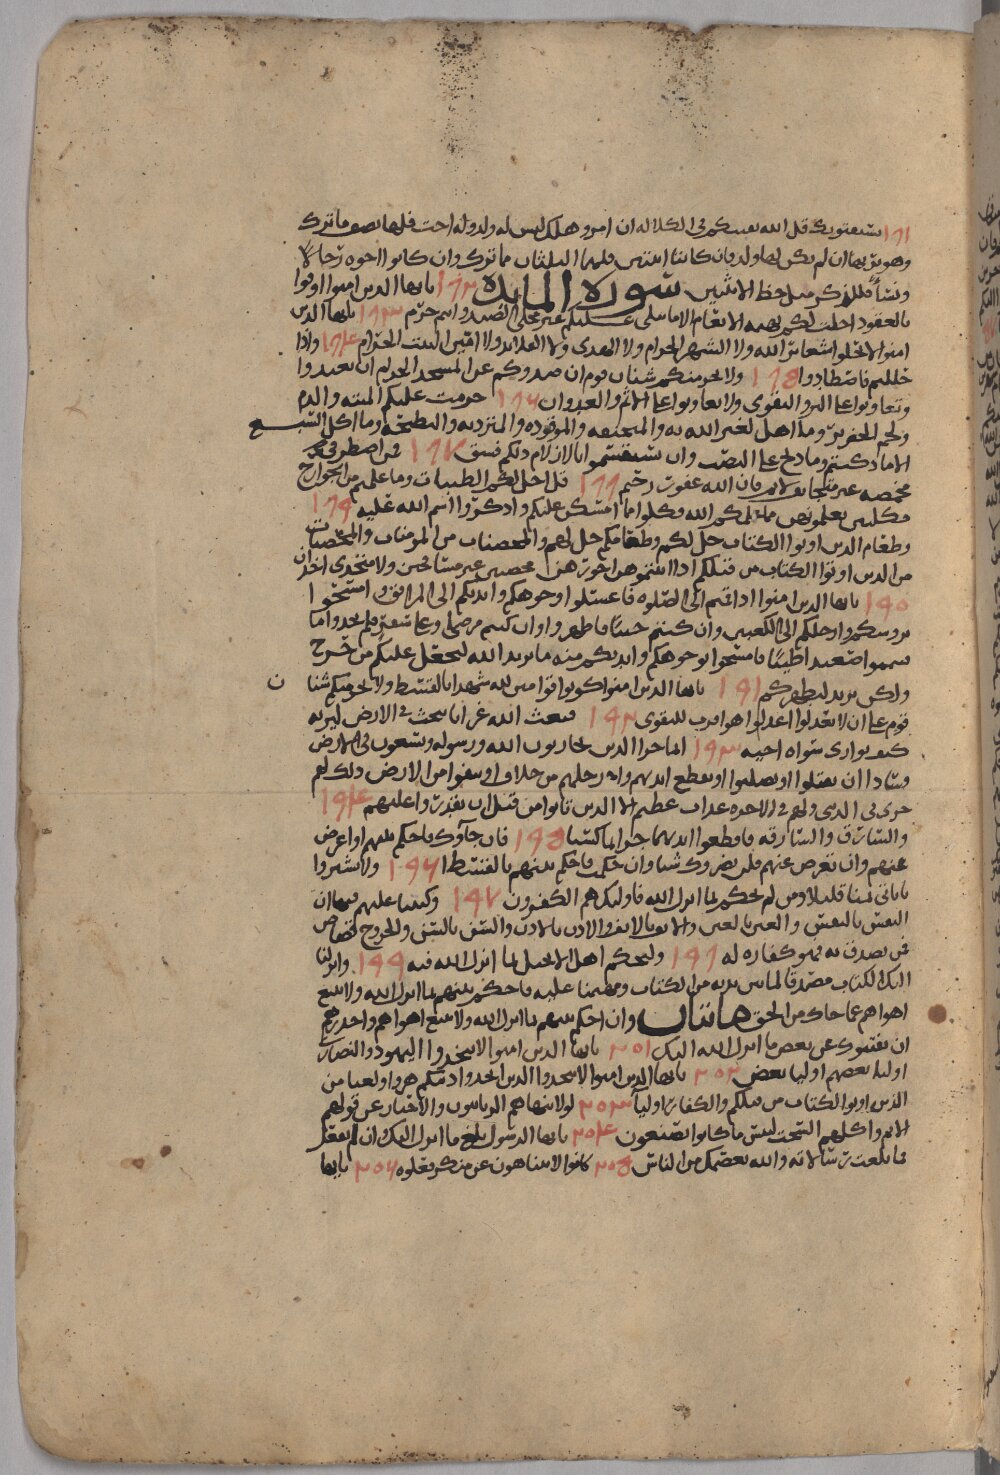 ١٨١ يستفتونك قل الله يفتيكم في الكلاله ان امرو هلك ليس له ولد وله اخت فلها نصف ما ترك
وهو يرثها ان لم يكن لها ولد فان كانتا اثنتين فلهما الثلثان مما ترك وان كانوا اخوه رجالا
ونساً فللذكر مثل حظ الانثيين سورة المايده ١٨٢ يايها الذين امنوا اوفوا
بالعقود احلت لكم بهيمه الانعام الا ما يتلى عليكم غير محلي الصيد وانتم حرم ١٨٣ يايها الذين
امنوا لا تحلوا شعاير الله ولا الشهر الحرام ولا الهدى ولا القلايد ولا امين البيت الحرام ١٨٤ واذا
حللتم فاصطادوا ١٨٥ ولا يجرمنكم شنان قوم ان صدوكم عن المسجد الحرام ان تعتدوا
وتعاونوا على البر والتقوى ولا تعاونوا على الاثم والعدوان ١٨٦ حرمت عليكم الميته والدم
ولحم الخنزير وما اهل لغير الله به والمنخنقه والموقوده والمترديه والنطيحه وما اكل السبع
الا ما ذكيتم وما ذبح على النصب وان تستقسموا بالازلام ذلكم فسق ١٨٧ فمن اضطر في
مخمصه غير متجانف لاثم فان الله غفور رحيم ١٨٨ قل احل لكم الطيبات وما علمتم من الجوارح
مكلبين تعلمونهن مما علمكم الله فكلوا مما امسكن عليكم واذكروا اسم الله عليه ١٨٩
وطعام الذين اوتوا الكتاب حل لكم وطعامكم حل لهم والمحصنات من المومنات والمحصنات
من الذين اوتوا الكتاب من قبلكم اذا اتيتموهن اجورهن محصنين غير مسافحين ولا متخذى اخدان
١٩٠ يايها الذين امنوا اذا قمتم الى الصلوه فاغسلوا وجوهكم وايديكم الى المرافق وامسحوا
بروسكم وارجلكم الى الكعبين وان كنتم جنبا فاطهروا وان كنتم مرضى او على سفر فلم تجدوا ما
فتيمموا صعيدا طيبا فامسحوا بوجوهكم وايديكم منه ما يريد الله ليجعل عليكم من حرج
ولكن يريد ليطهركم ١٩١ يايها الذين امنوا كونوا قوامين لله شهدا بالقسط ولا يجرمنكم شنا ن
قوم على ان لا تعدلوا اعدلوا هو اقرب للتقوى ١٩٢ فبعث الله غرابا يبحث في الارض ليريه
كيف يوارى سواه اخيه ١٩٣ انما جزا الذين يحاربون الله ورسوله ويسعون في الارض
فسادا ان يقتلوا او يصلبوا او تقطع ايديهم وارجلهم من خلاف او ينفوا من الارض ذلك لهم
خزى في الدنيا ولهم في الاخره عذاب عظيم الا الذين تابوا من قبل ان تقدروا عليهم ١٩٤
والسارق والسارقه فاقطعوا ايديهما جزا بما كسبا ١٩٥ فان جاوك فاحكم بينهم او اعرض
عنهم وان تعرض عنهم فلن يضروك شيا وان حكمت فاحكم بينهم بالقسط ١٩٦ ولا تشتروا
باياتى ثمنا قليلا ومن لم يحكم بما انزل الله فاوليك هم الكفرون ١٩٧ وكتبنا عليهم فيها ان
النفس بالنفس والعين بالعين والانف بالانف والاذن بالاذن والسن بالسن والجروح قصاص
فمن تصدق به فهو كفاره له ١٩٨ وليحكم اهل الانجيل بما انزل الله فيه ١٩٩ وانزلنا
اليك الكتاب مصدقا لما بين يديه من الكتاب ومهيمنا عليه فاحكم بينهم بما انزل الله ولا تتبع
اهواهم عما جاك من الحق مائتان وان احكم بينهم بما انزل الله ولا تتبع اهواهم واحذرهم
ان يفتنوك عن بعض ما انزل الله اليك ٢٠١ يايها الذين امنوا لا تتخذوا اليهود والنصارى
اوليا بعضهم اوليا بعض ٢٠٢ يايها الذين امنوا لا تتخذوا الذين اتخذوا دينكم هزوا ولعبا من
الذين اوتوا الكتاب من قبلكم والكفار اوليا ٢٠٣ لولا ينهاهم الربانيون والاحبار عن قولهم
الاثم واكلهم السحت لبيس ما كانوا يصنعون ٢٠٤ يايها الرسول بلغ ما انزل اليك ان لم تفعل
فما بلغت رسالاته والله يعصمك من الناس ٢٠٥ كانوا لا يتناهون عن منكر فعلوه ٢٠٦ يايها